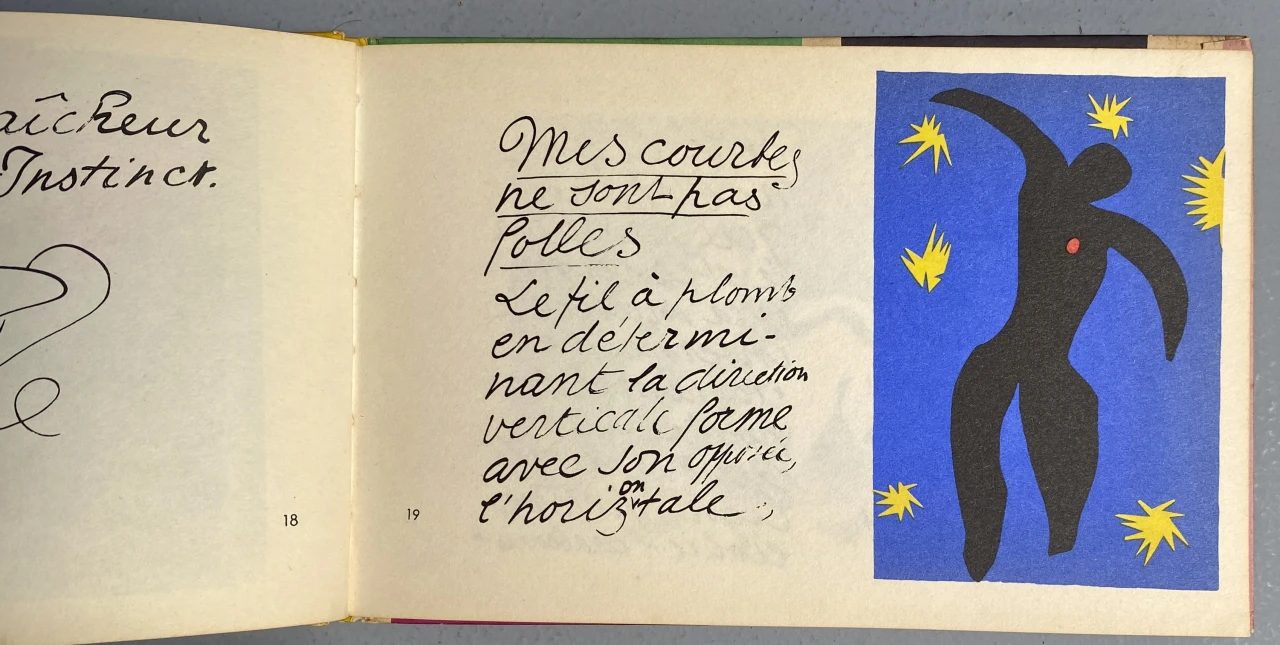 aîcheur
Instinct.
18
Mes courbes
ne sont pas
folles
Le fil à plomb
en détermi-
nant la direction
verticale forme
avec son opposée,
l'horizontale,
19